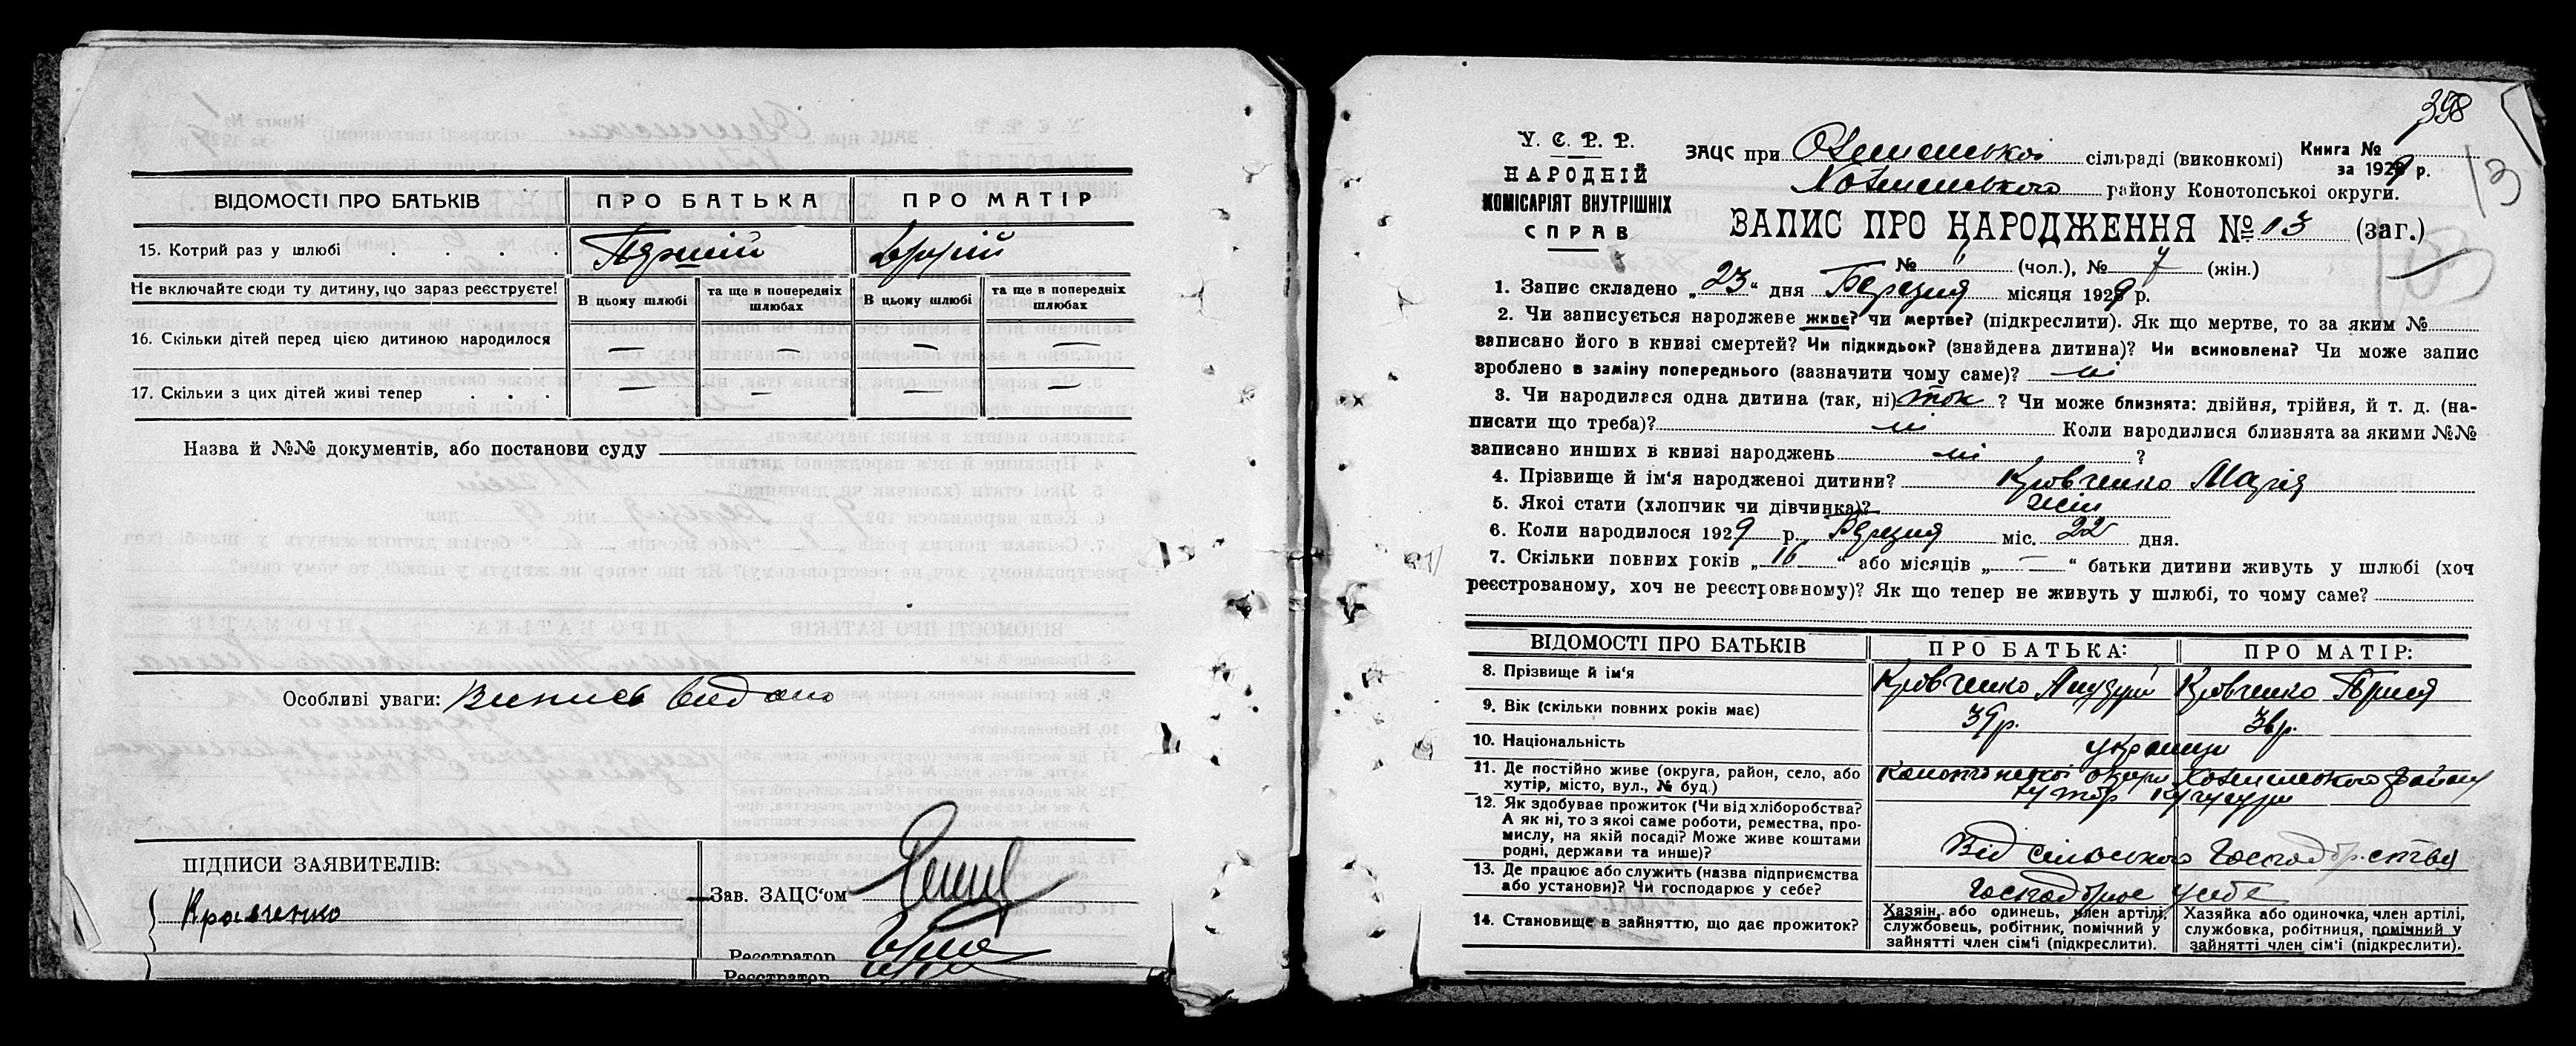 ВІДОМОСТІ ПРО БАТЬКІВ
ПРО БАТЬКА
ПРО МАТІР
15. Котрий раз у шлюбі . . . .
Не включайте сюди ту дитину, що зараз реєструєте!
В цьому шлюбі
та ще в попередніх шлюбах
В цьому шлюбі
та ще в попередніх шлюбах
16. Скільки дітей перед цією дитиною народилося
— — — —
17. Скільки з цих дітей живі тепер . . .
— — — —
Назва й №№ документів, або постанови суду
Особливі уваги: Випись видано
ПІДПИСИ ЗАЯВИТЕЛІВ:
Кравченко
Зав. ЗАЦС'ом
Реєстратор
Реєстратор
398
У. С. Р. Р.
НАРОДНІЙ
КОМІСАРІЯТ ВНУТРІШНІХ
СПРАВ
ЗАЦС при сільраді (виконкомі)
Книга №
за 1929 р.
району Конотопської округи.
13
ЗАПИС ПРО НАРОДЖЕННЯ № 13 (заг.)
№ (чол.), № 7 (жін.)
1. Запис складено „23“ дня Березня місяця 1929 р.
2. Чи записується народжеве живе? чи мертве? (підкреслити). Як що мертве, то за яким №
записано його в книзі смертей? Чи підкидьок? (знайдена дитина)? Чи всиновлена? Чи може запис
зроблено в заміну попереднього (зазначити чому саме)? ні
3. Чи народилася одна дитина (так, ні) так ? Чи може близнята: двійня, трійня, й т. д. (на-
писати що треба)? ні Коли народилися близнята за якими №№
записано инших в книзі народжень ні ?
4. Прізвище й ім'я народженої дитини? Кравченко Марія
5. Якої стати (хлопчик чи дівчинка)? жін
6. Коли народилося 1929 р. Березня міс. 22 дня.
7. Скільки повних років „16“ або місяців „—“ батьки дитини живуть у шлюбі (хоч
реєстрованому, хоч не реєстрованому)? Як що тепер не живуть у шлюбі, то чому саме?
ВІДОМОСТІ ПРО БАТЬКІВ
ПРО БАТЬКА:
ПРО МАТІР:
8. Прізвище й ім'я
Кравченко
Кравченко
9. Вік (скільки повних років має)
39р.
36р.
10. Національність
українці
11. Де постійно живе (округа, район, село, або
хутір, місто, вул., № буд.)
Конотопської округи району
хутор
12. Як здобуває прожиток (Чи від хліборобства?
А як ні, то з якої саме роботи, ремества, про-
мислу, на якій посаді? Може живе коштами
родні, держави та инше)?
Від сільського господарства
13. Де працює або служить (назва підприємства
або установи)? Чи господарює у себе?
господарює у себе
14. Становище в зайняттю, що дає прожиток?
Хазяін, або одинець, член артілі,
службовець, робітник, помічний у
зайнятті член сім'ї (підкреслити).
Хазяйка або одиночка, член артілі,
службовка, робітниця, помічний у
зайнятті член сім'ї (підкреслити).